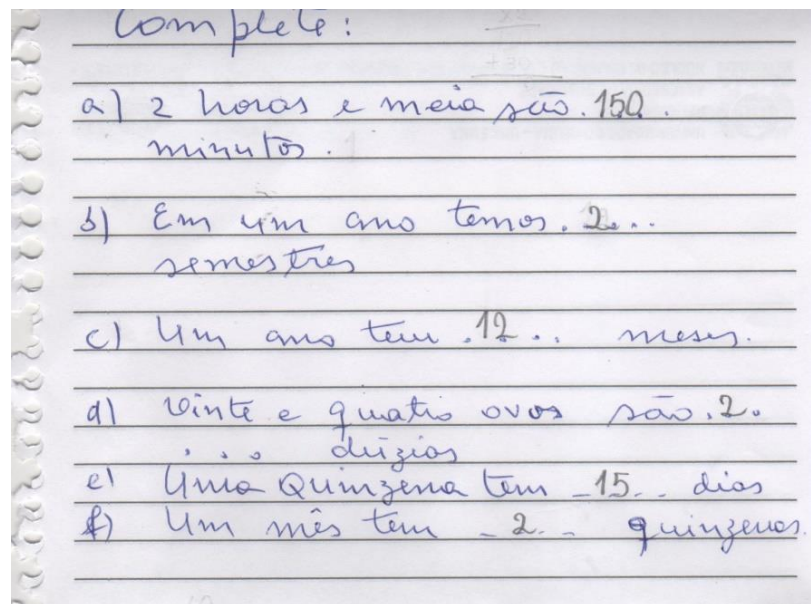 Complete:
a) 2 horas e meia são. 150.
minutos.
b) Em um ano temos. 2...
semestres
c) Um ano tem .12.. meses.
d) Vinte e quatro ovos são. 2.
... dúzias
e) Uma Quinzena tem -15.. dias
f) Um mês tem -2.- quinzenas.